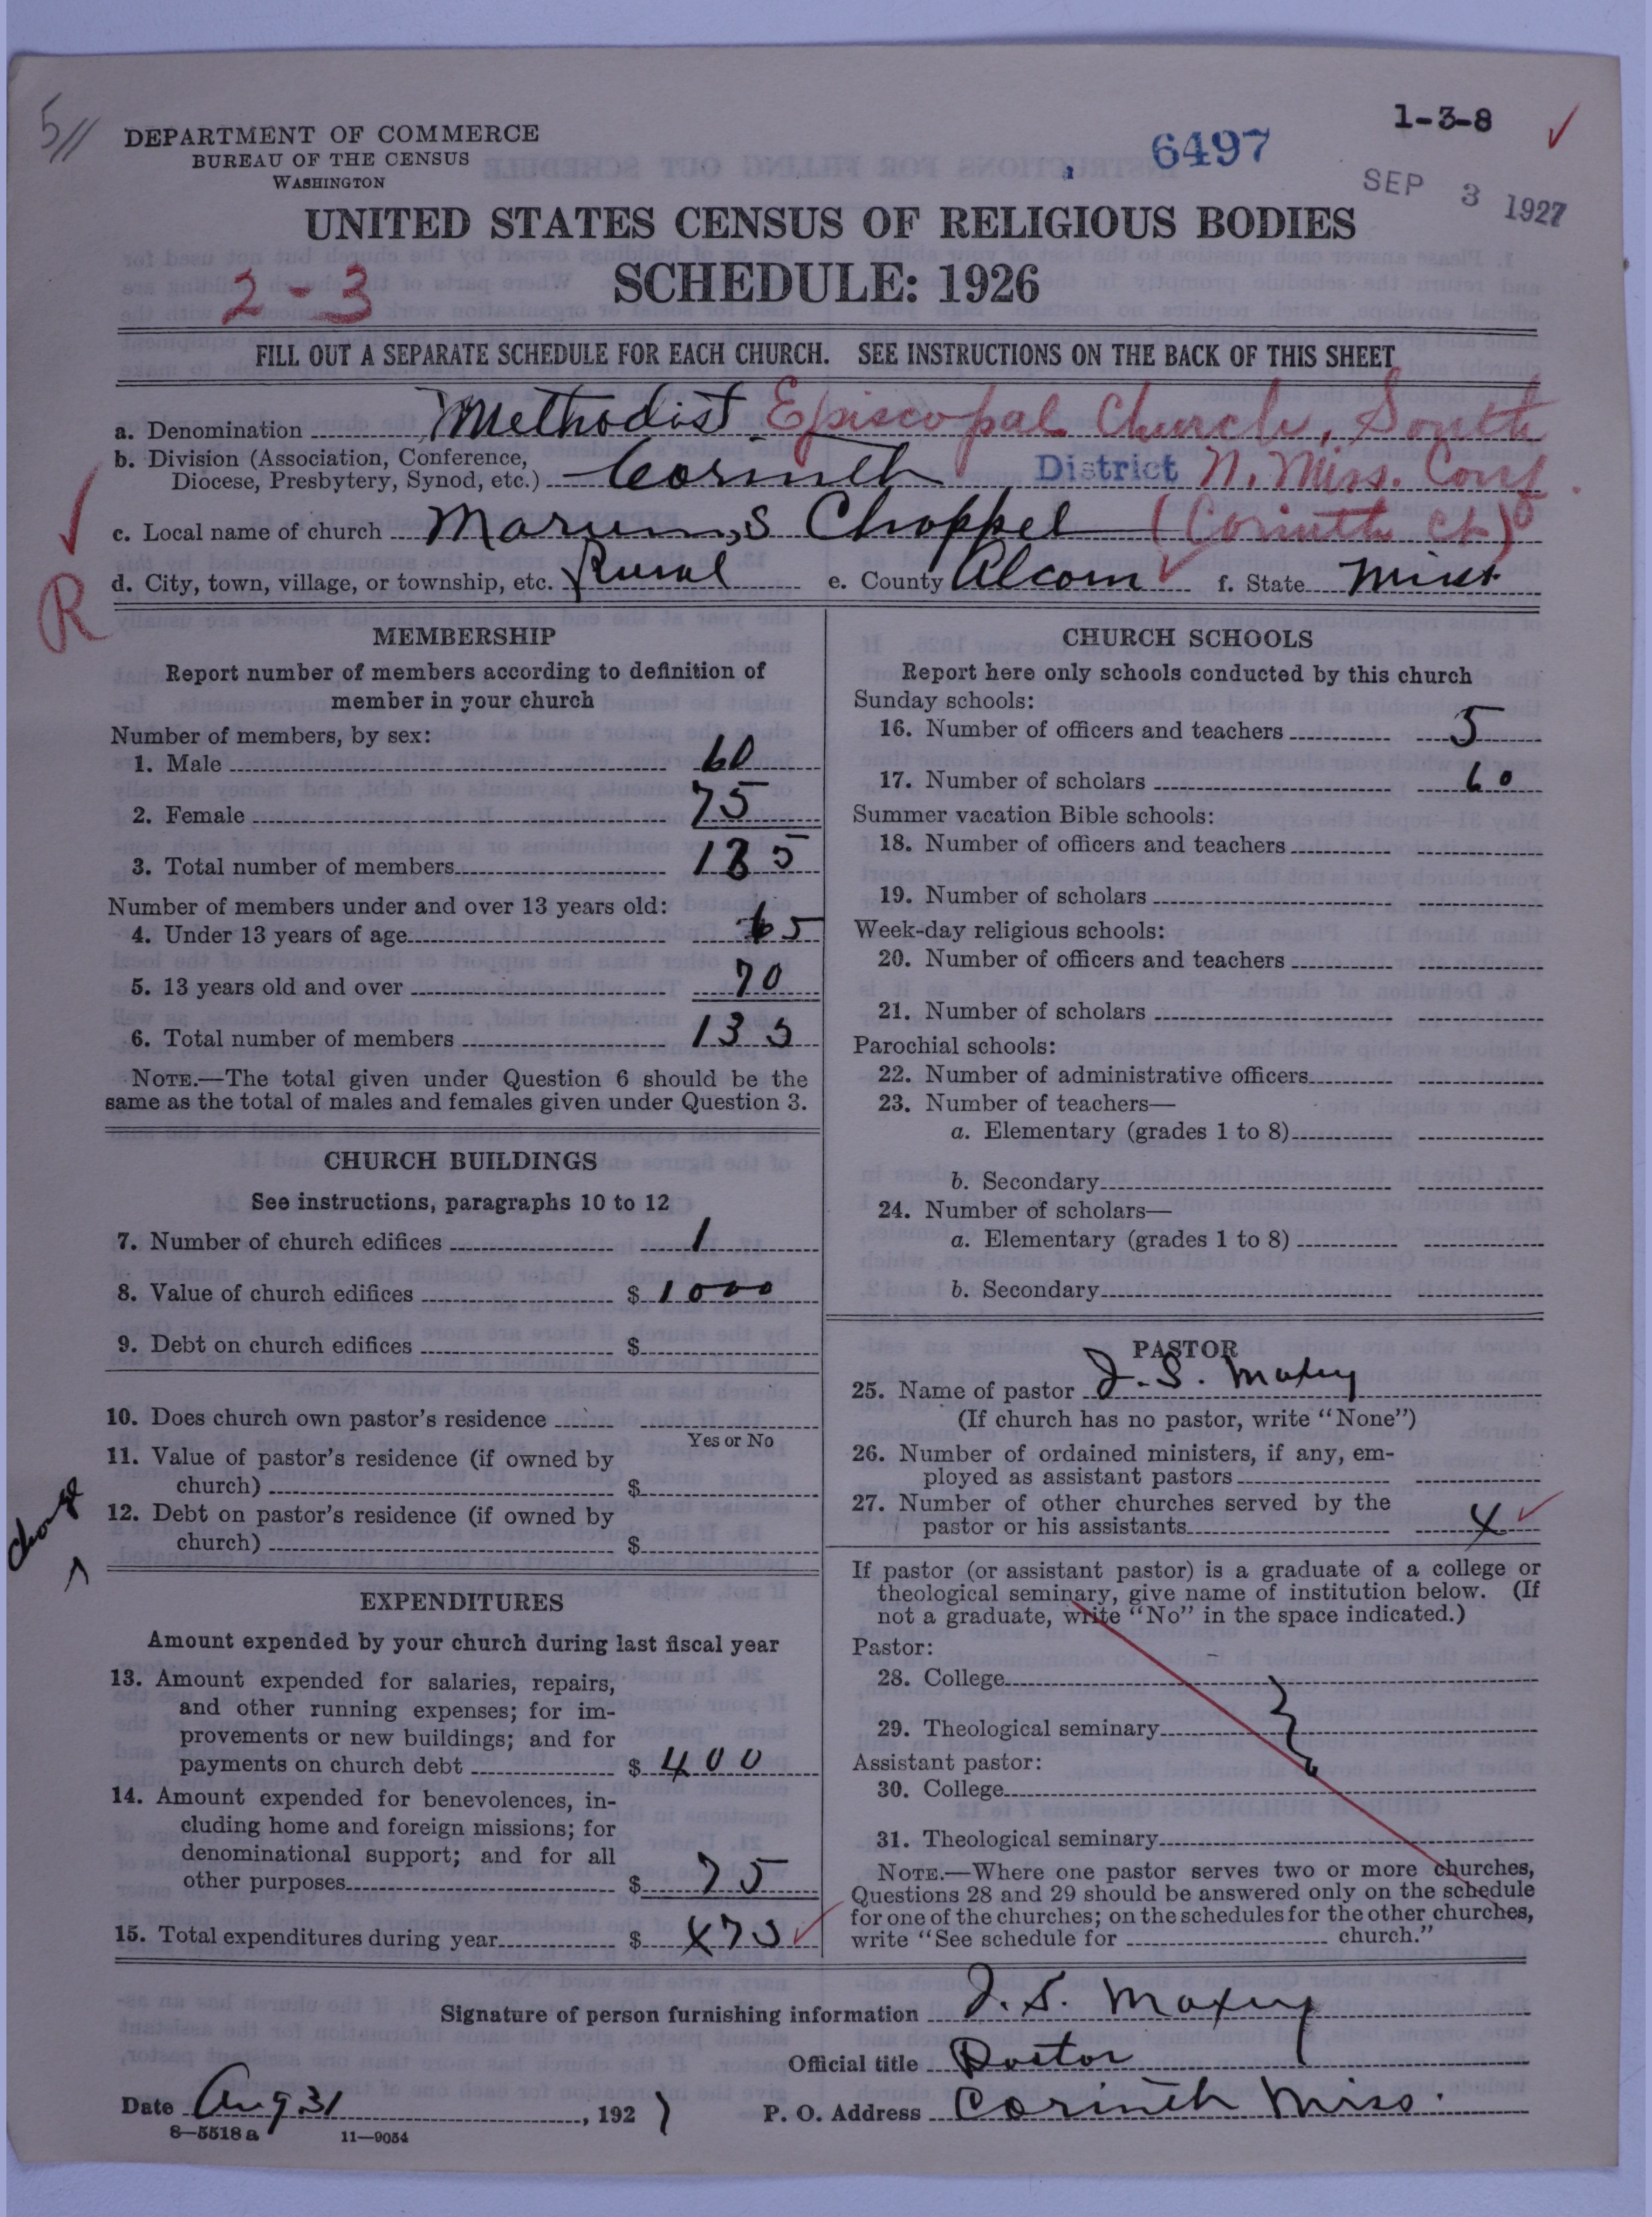 5//
DEPARTMENT OF COMMERCE
BUREAU OF THE CENSUS
WASHINGTON
6497
1-3-8
SEP 3 1927
UNITED STATES CENSUS OF RELIGIOUS BODIES
2-3
SCHEDULE: 1926
FILL OUT A SEPARATE SCHEDULE FOR EACH CHURCH. SEE INSTRUCTIONS ON THE BACK OF THIS SHEET
a. Denomination Methodist Episcopal Church, South
b. Division (Association, Conference,
Diocese, Presbytery, Synod, etc.) Corinth District N. Miss. Conf.
c. Local name of church Marvin,s Chappel (Corinth ct)
d. City, town, village, or township, etc. Rural e. County Alcorn f. State Miss.
R
MEMBERSHIP
Report number of members according to definition of
member in your church
Number of members, by sex:
1. Male 60
2. Female 75
3. Total number of members 135
Number of members under and over 13 years old:
4. Under 13 years of age 65
5. 13 years old and over 70
6. Total number of members 135
NOTE.—The total given under Question 6 should be the
same as the total of males and females given under Question 3.
CHURCH BUILDINGS
See instructions, paragraphs 10 to 12
7. Number of church edifices 1
8. Value of church edifices $ 1000
9. Debt on church edifices $
10. Does church own pastor's residence
Yes or No
11. Value of pastor's residence (if owned by
church) $
12. Debt on pastor's residence (if owned by
church) $
EXPENDITURES
Amount expended by your church during last fiscal year
13. Amount expended for salaries, repairs,
and other running expenses; for im-
provements or new buildings; and for
payments on church debt $ 400
14. Amount expended for benevolences, in-
cluding home and foreign missions; for
denominational support; and for all
other purposes $ 75
15. Total expenditures during year $ 475
CHURCH SCHOOLS
Report here only schools conducted by this church
Sunday schools:
16. Number of officers and teachers 5
17. Number of scholars 60
Summer vacation Bible schools:
18. Number of officers and teachers
19. Number of scholars
Week-day religious schools:
20. Number of officers and teachers
21. Number of scholars
Parochial schools:
22. Number of administrative officers
23. Number of teachers—
a. Elementary (grades 1 to 8)
b. Secondary
24. Number of scholars—
a. Elementary (grades 1 to 8)
b. Secondary
PASTOR
25. Name of pastor J. S. Maxey
(If church has no pastor, write "None")
26. Number of ordained ministers, if any, em-
ployed as assistant pastors
27. Number of other churches served by the
pastor or his assistants 4
If pastor (or assistant pastor) is a graduate of a college or
theological seminary, give name of institution below. (If
not a graduate, write "No" in the space indicated.)
Pastor:
28. College
29. Theological seminary
Assistant pastor:
30. College
31. Theological seminary
NOTE.—Where one pastor serves two or more churches,
Questions 28 and 29 should be answered only on the schedule
for one of the churches; on the schedules for the other churches,
write "See schedule for church."
Signature of person furnishing information J. S. Maxey
Official title Pastor
Date Aug 31, 1927 P. O. Address Corinth Miss.
8—5518 a 11—9054